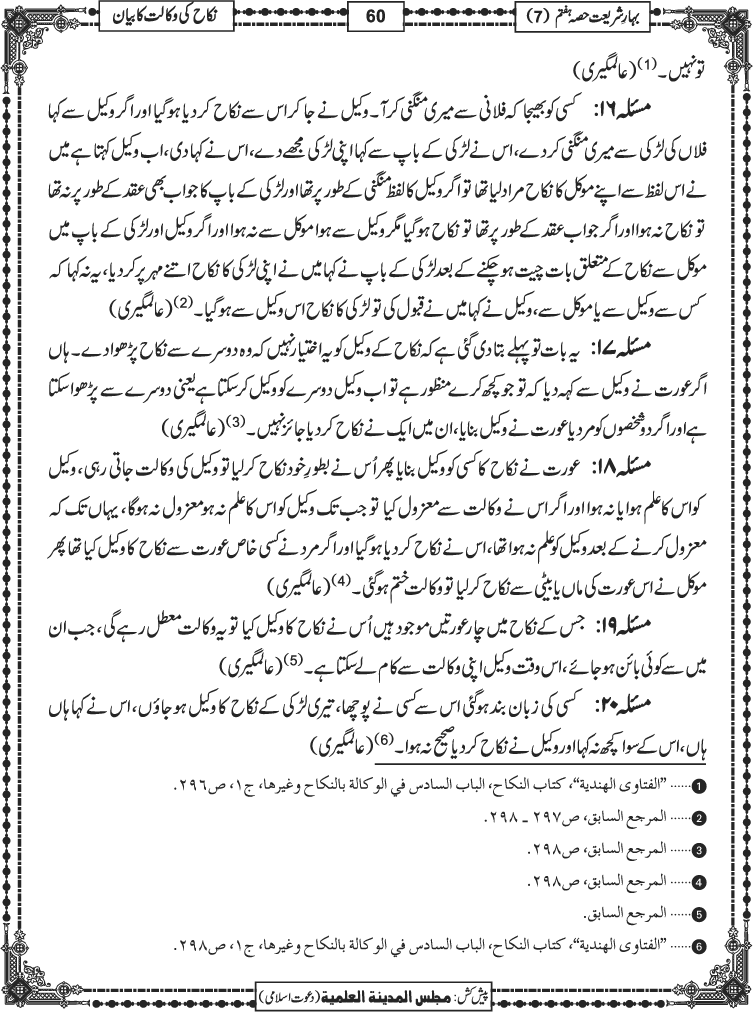 بہارِ شریعت حصہ ہفتم (7)
60
نکاح کی وکالت کا بیان
تو نہیں۔(1) (عالمگیری)
مسئلہ ۱۶: کسی کو بھیجا کہ فلانی سے میری منگنی کر آ۔ وکیل نے جا کر اس سے نکاح کر دیا ہو گیا اور اگر وکیل سے کہا
فلاں کی لڑکی سے میری منگنی کر دے، اس نے لڑکی کے باپ سے کہا اپنی لڑکی مجھے دے، اس نے کہا دی، اب وکیل کہتا ہے میں
نے اس لفظ سے اپنے موکل کا نکاح مراد لیا تھا تو اگر وکیل کا لفظ منگنی کے طور پر تھا اور لڑکی کے باپ کا جواب بھی عقد کے طور پر نہ تھا
تو نکاح نہ ہوا اور اگر جواب عقد کے طور پر تھا تو نکاح ہو گیا مگر وکیل سے ہوا موکل سے نہ ہوا اور اگر وکیل اور لڑکی کے باپ میں
موکل سے نکاح کے متعلق بات چیت ہو چکنے کے بعد لڑکی کے باپ نے کہا میں نے اپنی لڑکی کا نکاح اتنے مہر پر کر دیا، یہ نہ کہا کہ
کس سے وکیل سے یا موکل سے، وکیل نے کہا میں نے قبول کی تو لڑکی کا نکاح اس وکیل سے ہو گیا۔(2) (عالمگیری)
مسئلہ ۱۷: یہ بات تو پہلے بتا دی گئی ہے کہ نکاح کے وکیل کو یہ اختیار نہیں کہ وہ دوسرے سے نکاح پڑھوا دے۔ ہاں
اگر عورت نے وکیل سے کہہ دیا کہ تو جو کچھ کرے منظور ہے تو اب وکیل دوسرے کو وکیل کر سکتا ہے یعنی دوسرے سے پڑھوا سکتا
ہے اور اگر دو شخصوں کو مرد یا عورت نے وکیل بنایا، ان میں ایک نے نکاح کر دیا جائز نہیں۔(3) (عالمگیری)
مسئلہ ۱۸: عورت نے نکاح کا کسی کو وکیل بنایا پھر اُس نے بطورِ خود نکاح کر لیا تو وکیل کی وکالت جاتی رہی، وکیل
کو اس کا علم ہوا یا نہ ہوا اور اگر اس نے وکالت سے معزول کیا تو جب تک وکیل کو اس کا علم نہ ہو معزول نہ ہوگا، یہاں تک کہ
معزول کرنے کے بعد وکیل کو علم نہ ہوا تھا، اس نے نکاح کر دیا ہو گیا اور اگر مرد نے کسی خاص عورت سے نکاح کا وکیل کیا تھا پھر
موکل نے اس عورت کی ماں یا بیٹی سے نکاح کر لیا تو وکالت ختم ہو گئی۔(4) (عالمگیری)
مسئلہ ۱۹: جس کے نکاح میں چار عورتیں موجود ہیں اُس نے نکاح کا وکیل کیا تو یہ وکالت معطل رہے گی، جب ان
میں سے کوئی بائن ہو جائے، اس وقت وکیل اپنی وکالت سے کام لے سکتا ہے۔(5) (عالمگیری)
مسئلہ ۲۰: کسی کی زبان بند ہو گئی اس سے کسی نے پوچھا، تیری لڑکی کے نکاح کا وکیل ہو جاؤں، اس نے کہا ہاں
ہاں، اس کے سوا کچھ نہ کہا اور وکیل نے نکاح کر دیا صحیح نہ ہوا۔(6) (عالمگیری)
1 ...... ”الفتاوی الھندیة“، کتاب النکاح، الباب السادس في الوکالة بالنکاح وغیرھا، ج١، ص٢٩٦.
2 ...... المرجع السابق، ص٢٩٧ ـ ٢٩٨.
3 ...... المرجع السابق، ص٢٩٨.
4 ...... المرجع السابق، ص٢٩٨.
5 ...... المرجع السابق.
6 ...... ”الفتاوی الھندیة“، کتاب النکاح، الباب السادس في الوکالة بالنکاح وغیرھا، ج١، ص٢٩٨.
پیش کش: مجلس المدينة العلمية (دعوت اسلامی)